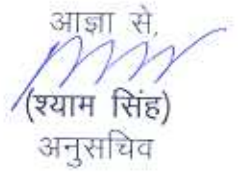 आज्ञा से,
(श्याम सिंह)
अनुसचिव